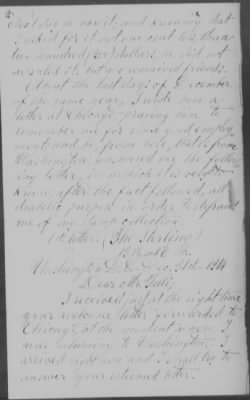 2.
that due in cash, and knowing that
I asked for it not one cent less than
two hundred (200) dollars, he did not
accept it, but we remained friends.
About the last days of December
of the same year, I wrote him a
letter at Chicago praying him to
remember me for some good employ
ment and he, from here, that is from
Washington, answered me the follow
ing letter, in which it is
known, after the fact followed, all
diabolic purpose in order to defraud
me of my stamp collection.
1st letter. (The Sterling)
13th St. N.W.
Washington D.C. Dec. 31st 1914
Dear Mr.
I received just at the right time
your welcome letter forwarded to
Chicago, at the moment when I
was returning to Washington. I
arrived right now and I shall try to
answer your esteemed letter.